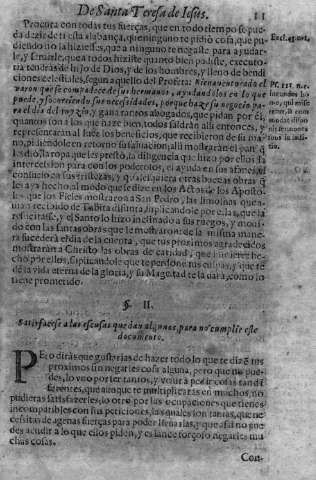 De Santa Teresa de Iesus.
11
Procura con todas tus fuerças, que en todo tiempo se pue-
da dezir de ti esta alabança, que ninguno te pidiò cosa, que pu-
diendo no la hiziesses, que a ninguno te negaste para ayudar-
le, y seruirle, que a todos hiziste quanto bien pudiste, executo-
ria tendràs de hijo de Dios, y de los hombres, y lleno de bendi-
ciones celestiales, segun aquello del Profeta: Bienauenturado el
varon que se compadece de sus hermanos, ayudandolos en lo que
puede, y socorriendo sus necessidades, porque haze su negocio pa-
ra el dia del juyzio, y ganarà tantos abogados, que pidan por èl,
quantos son a los que haze bien, todos saldràn alli entonces, y
representaràn al Iuez los beneficios, que recibieron de su ma-
no, pidiendole en retorno su saluacion, alli mostraràn el
la ropa, que les prestò, la diligencia que hizo por ellos
intercession para con los poderosos, el ayuda en sus afanes, el
consuelo en sus tristezas, y
lei ya hecho, al modo que se dize en los Actos de los Aposto-
les, que los Fieles mostraron a San Pedro, las limosnas que
auian recibido de Tabita difunta, suplicandole por ellas, que la
resucitasse, y el Santo lo hizo inclinado a sus ruegos, y mouido
con las santas obras que le mostraron: de la misma mane-
ra sucederà el dia de la cuenta, que tus proximos agradecidos
mostraràn a Christo las obras de caridad, que huuieres he-
cho por ellos, suplicandole que te perdone tus culpas, y que te
dè la vida eterna de la gloria, y su Magestad te la darà, como lo
tiene prometido.
Eccl. 45. vet.
Psal. 111.
§. II.
Satisfacese a las escusas que dan algunos, para no cumplir este
documento.
PEro diràs que gustarias de hazer todo lo que te dizē tus
proximos sin negarles cosa alguna, pero que no pue-
des, lo vno por ser tantos, y venir a pedir cosas tan di-
ferentes, que aunque te multiplicaras en muchos, no
pudieras satisfazerles; lo otro por las ocupaciones que tienes
incompatibles con sus peticiones, las quales son tantas, que ne-
cessitas de agenas fuerças para poder lleuarlas, y que assi no pue-
des acudir a lo que ellos piden, y es lance forçoso negarles mu-
chas cosas.
Con-